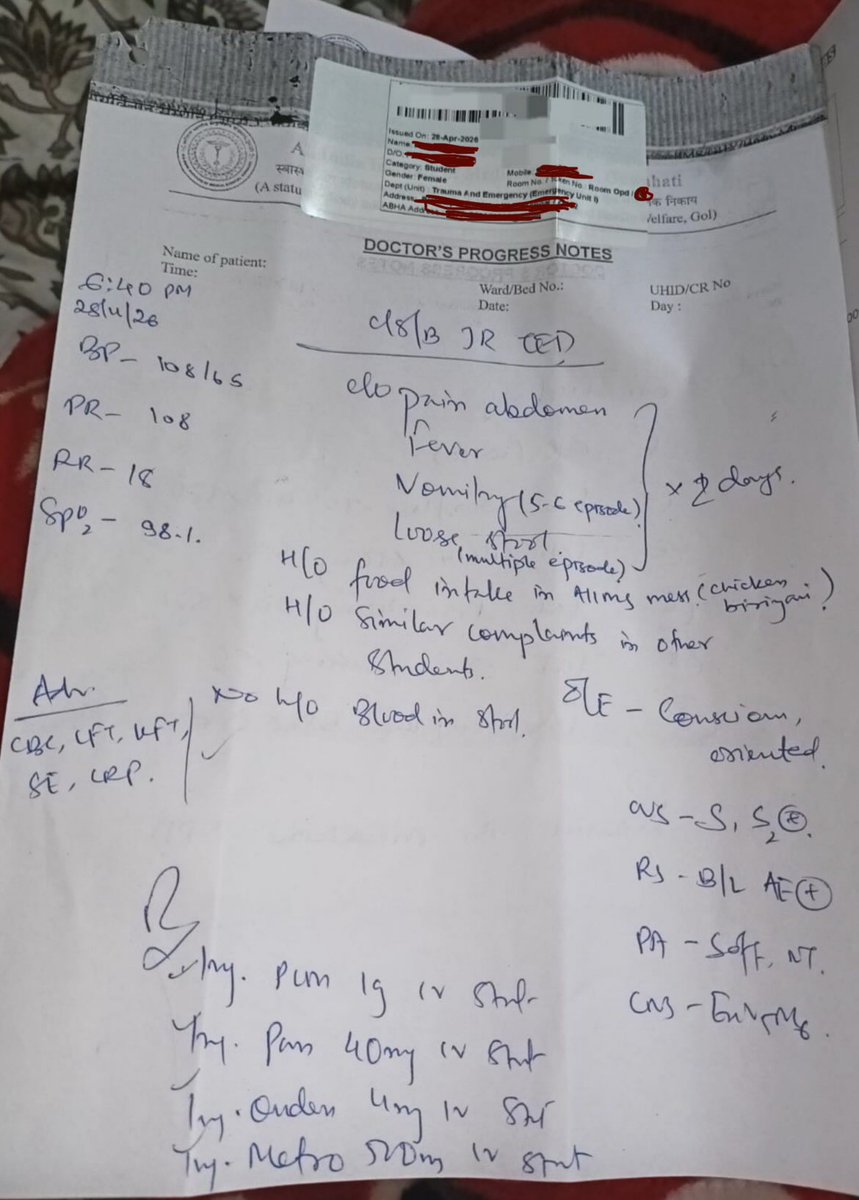 Issued On: 28-Apr-2026
Name:
D/O:
Category: Student
Mobile
Gender: Female
Room No. / Token No.: Room Opd /
Dept (Unit): Trauma And Emergency (Emergency Unit I)
Address:
ABHA Addr
A
hati
स्वास्थ
क निकाय
(A statu
elfare, GoI)
DOCTOR'S PROGRESS NOTES
Name of patient:
Time:
Ward/Bed No.:
Date:
UHID/CR No
Day :
6:40 PM
28/4/26
BP - 108/65
PR - 108
RR - 18
SpO2 - 98%
C/S/B JR TED
c/o pain abdomen
Fever
Vomiting (5-6 episode)
Loose stool
(multiple episode)
x 2 days.
H/O food intake in AIIMS mess. (chicken biriyani)
H/O similar complaints in other
students.
No H/O Blood in stool.
Adv.
CBC, LFT, KFT,
SE, CRP.
O/E - Conscious,
oriented.
CVS - S1 S2 +
RS - B/L AE +
PA - Soft, NT.
CNS -
Rx
Inj. PCM 1g IV stat
Inj. Pan 40mg IV stat
Inj. Onden 4mg IV stat
Inj. Metro 500mg IV stat